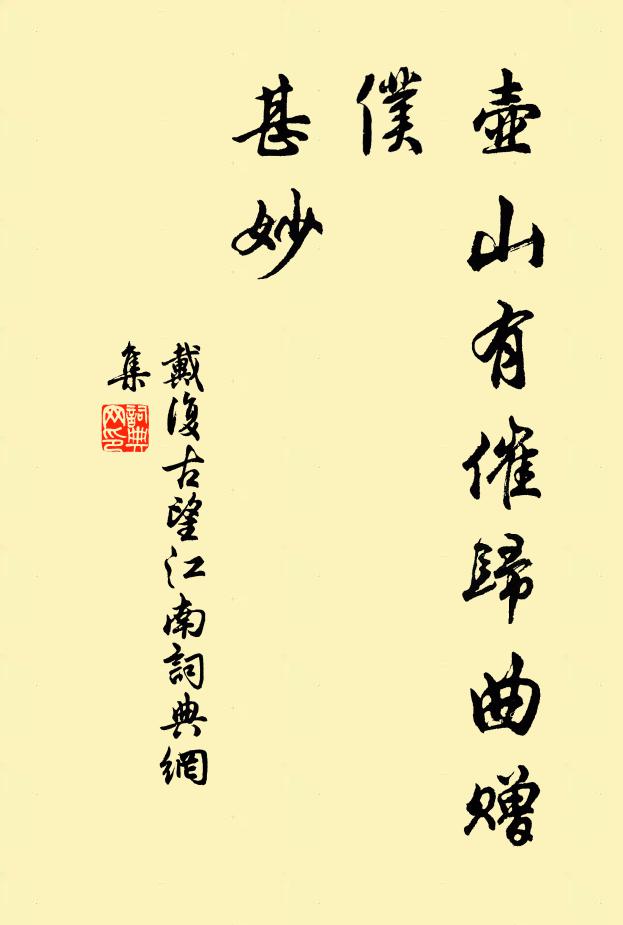 壺山有催歸曲贈
僕
甚妙
戴復古望江南詞典網
集
詞典
网印